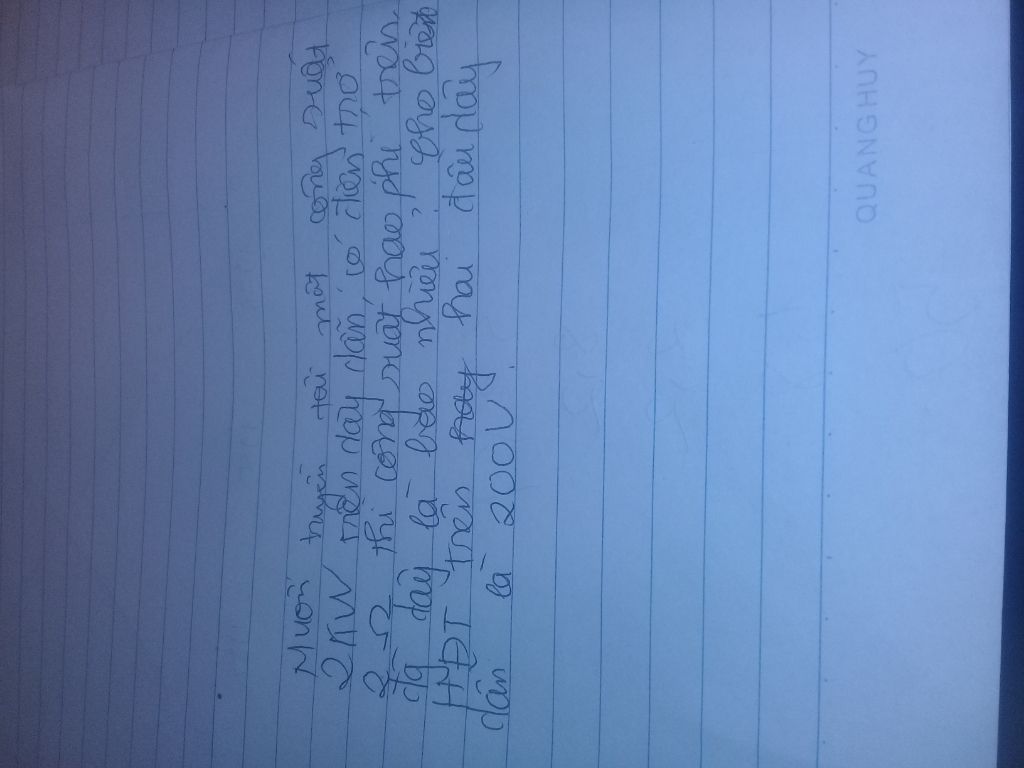 Muốn truyền tải một công suất
2kW trên dây dẫn có điện trở
2Ω thì công suất hao phí trên
đg dây là bao nhiêu, cho biết
HĐT trên hai đầu dây
dẫn là 200V.
QUANG HUY